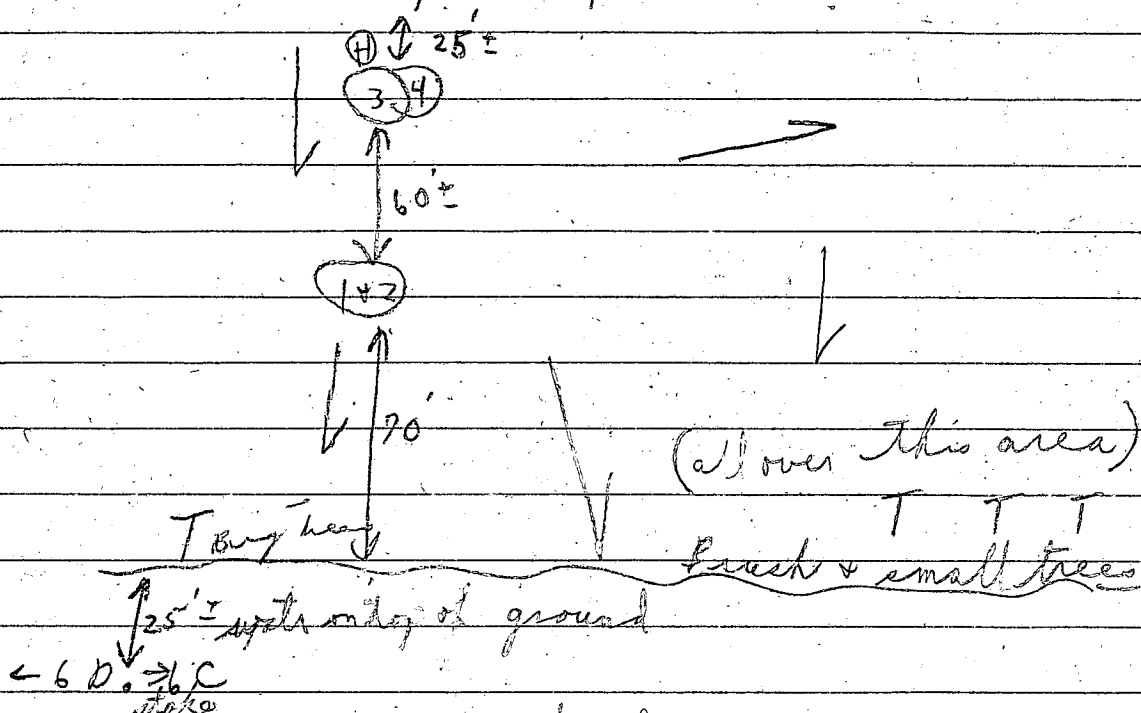 H 25'±
3, 4
60'±
1 & 2
70'
(all over this area)
T T T
T Big trees
Brush & small trees
25'± on top of ground
← 6 D. → 6 C
stake